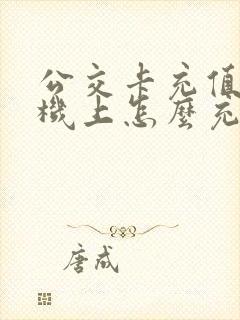 公交卡充值
機上怎麼充
唐咸